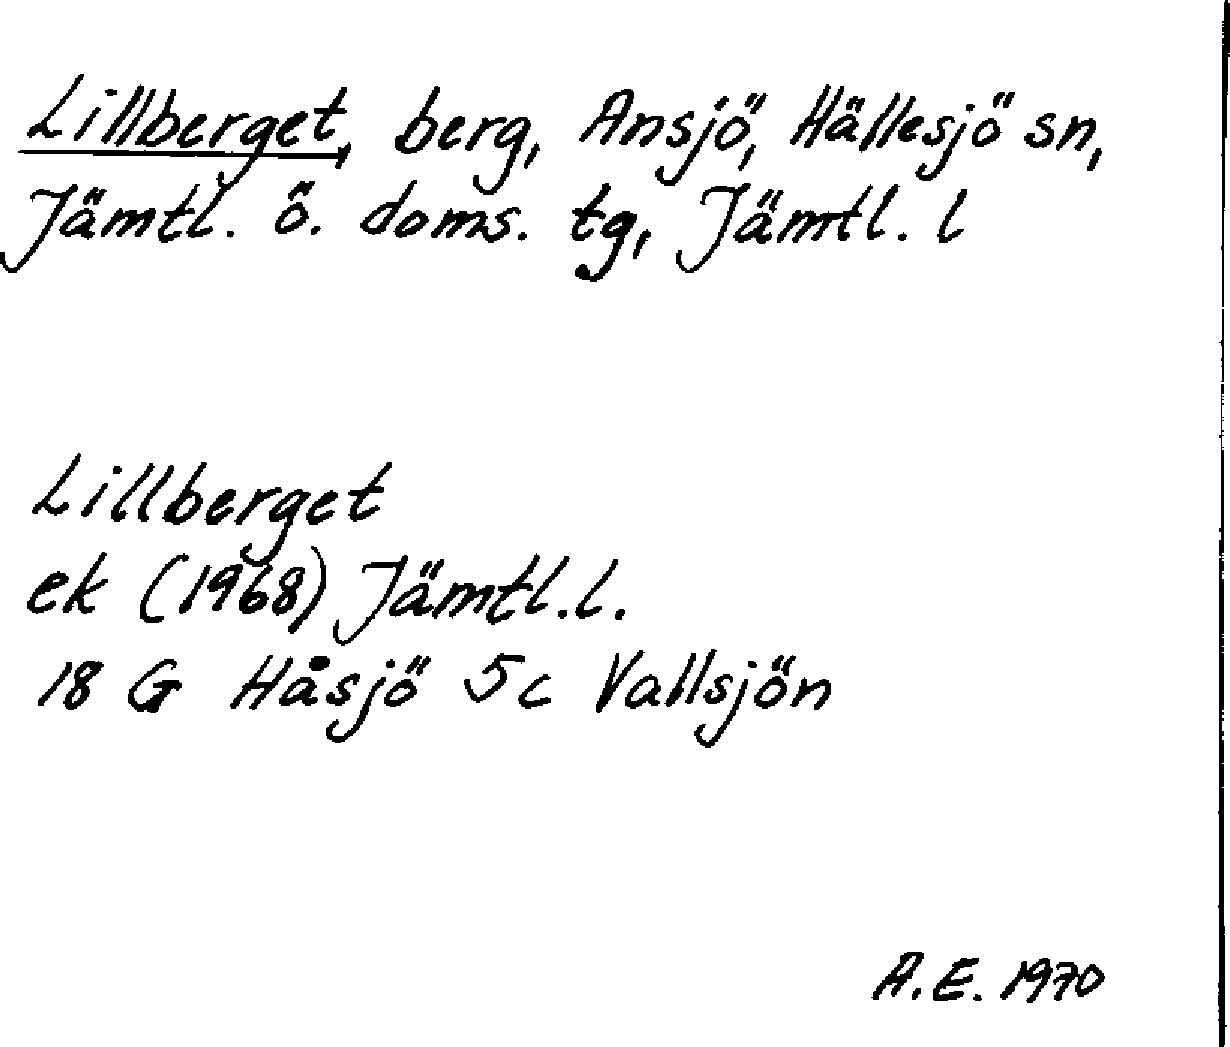 Lillberget, berg, Ansjö, Hällesjö sn,
Jämtl. ö. doms. tg, Jämtl. l
Lillberget
ek (1968) Jämtl.l.
18 G Håsjö 5c Vallsjön
A.E. 1970